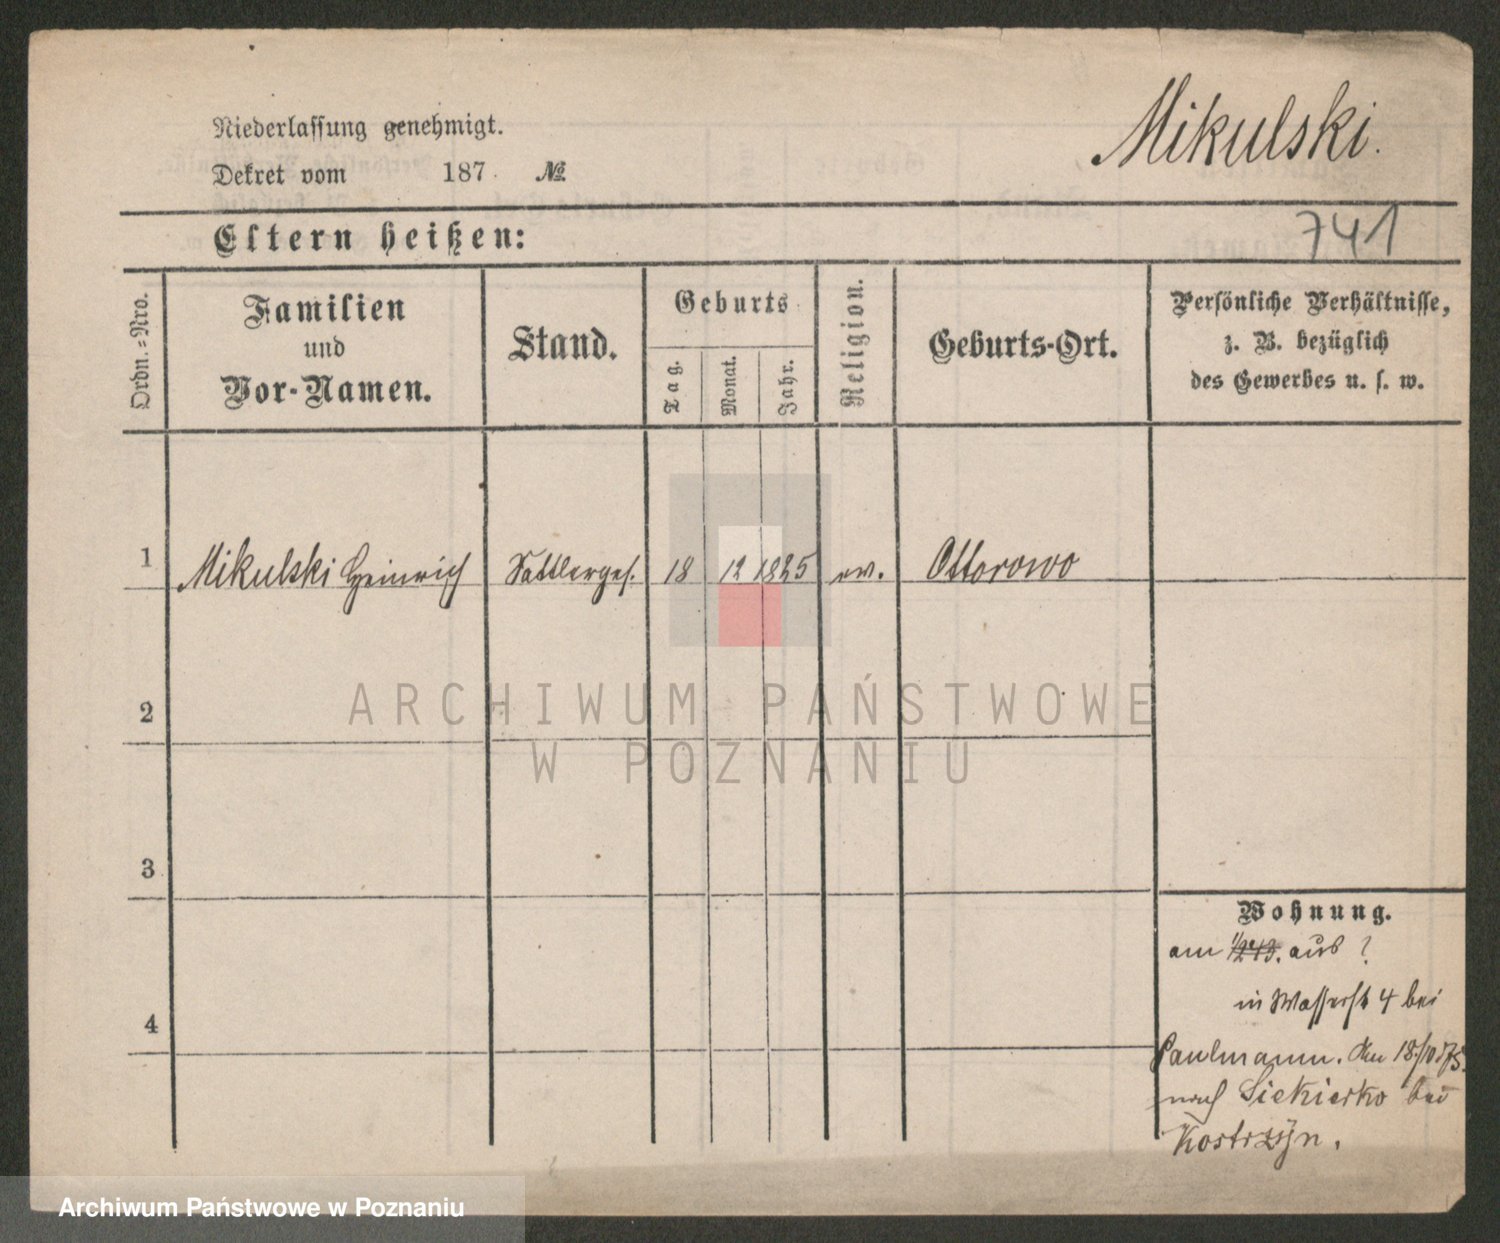 Mikulski.
Niederlassung genehmigt.
Dekret vom 187 №
741
Eltern heißen:
Ordn.=Nro.
Familien
und
Vor-Namen.
Stand.
Geburts
Tag.
Monat.
Jahr.
Religion.
Geburts-Ort.
Persönliche Verhältnisse,
z. B. bezüglich
des Gewerbes u. s. w.
1 Mikulski Heinrich Sattlerges. 18 12 1825 ev. Ottorowo
2
3
4
Wohnung.
am aus ?
in Wasserst 4 bei
Paulmann. Am 18./10 75.
nach Siekierko bei
Kostrzyn.
ARCHIWUM PAŃSTWOWE
W POZNANIU
Archiwum Państwowe w Poznaniu